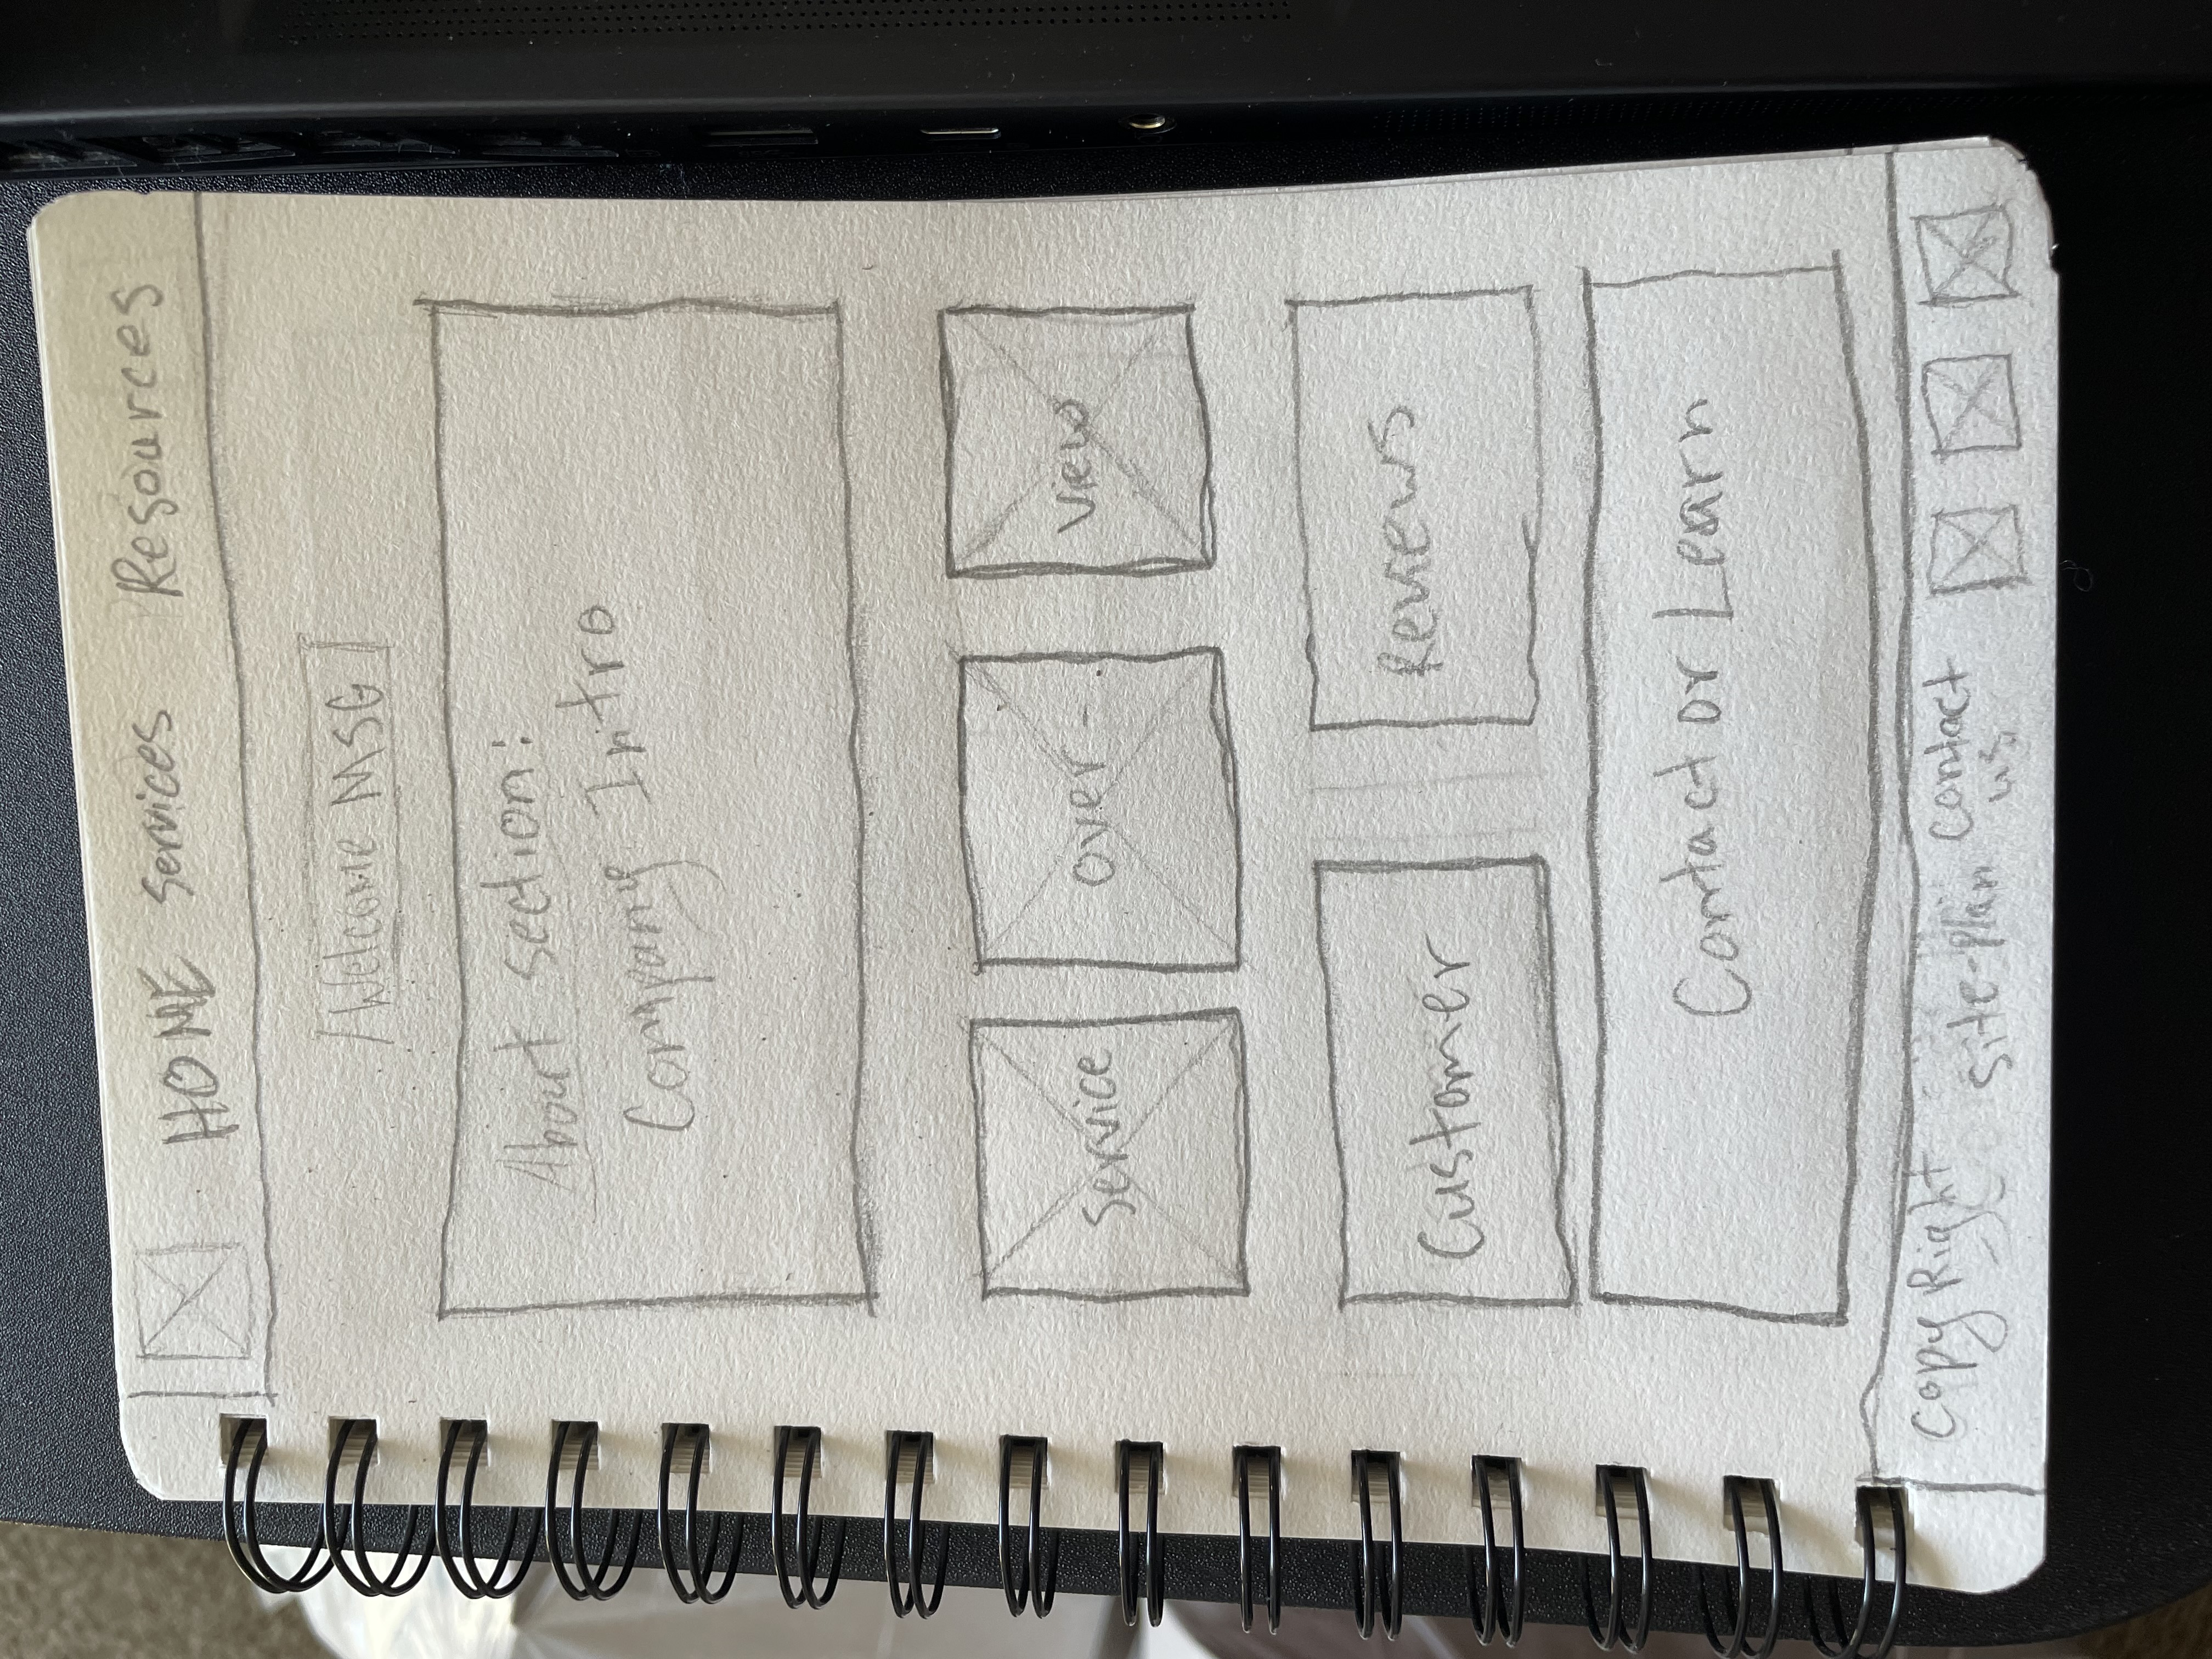 HOME Services Resources
Welcome MSG
About section:
Company Intro
Service over- view
Customer Reviews
Contact or Learn
Copy Right site-plan contact
us